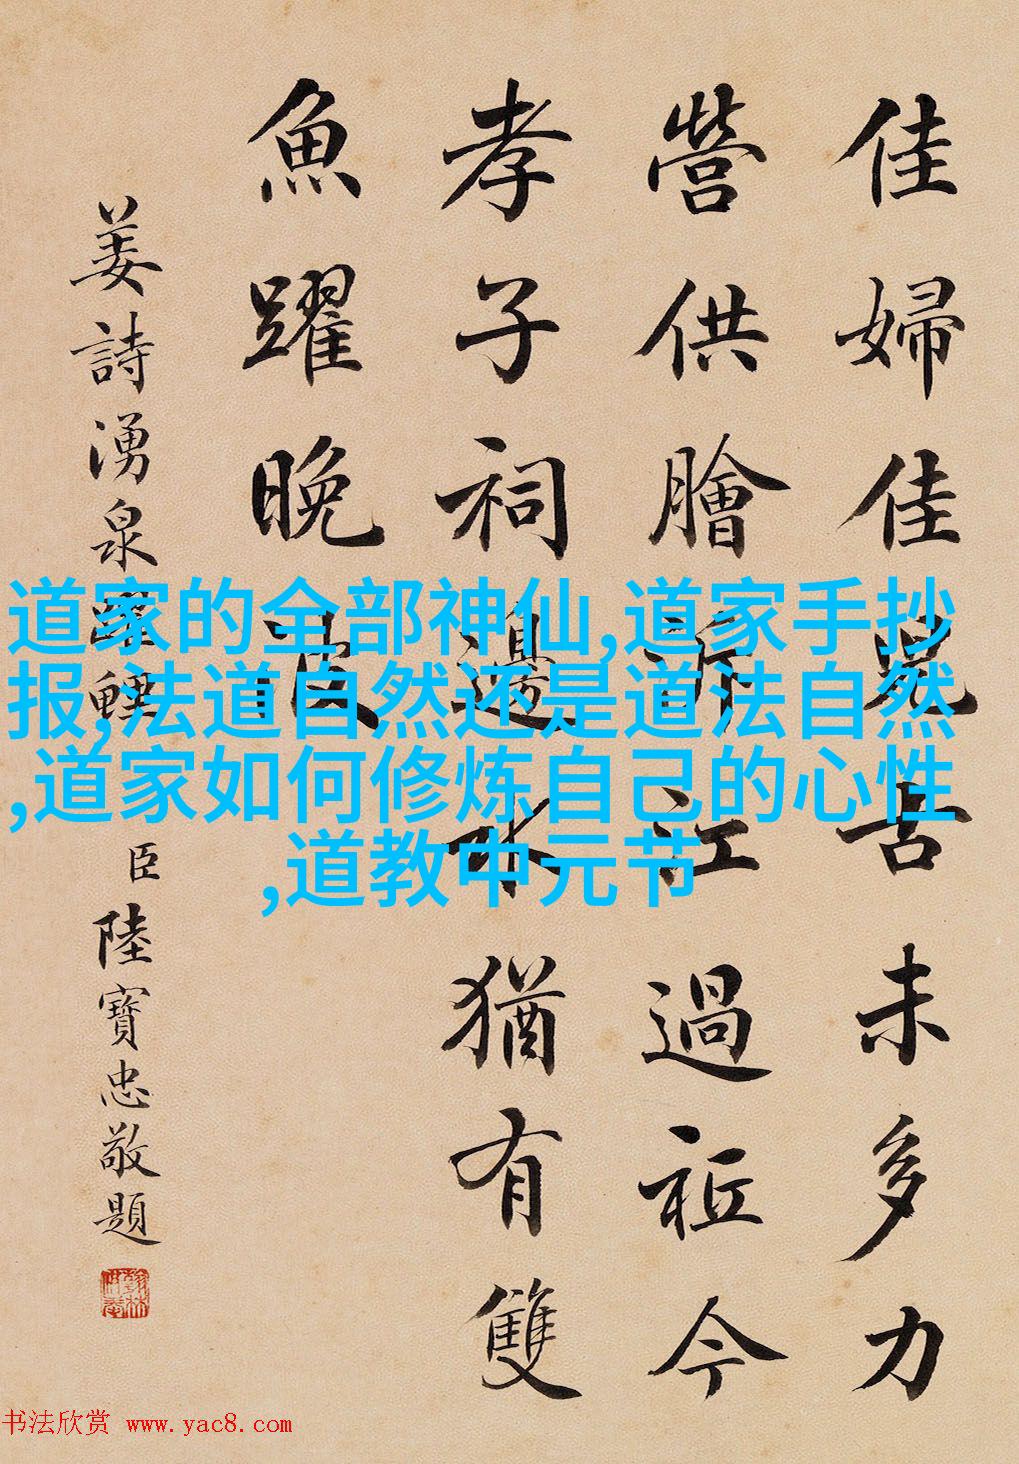 佳婦佳兒古未多力
營供膾泝江過祗今
孝子祠邊水猶有雙
魚躍晚波
姜詩湧泉躍鯉
臣陸寶忠敬題
道家的全部神仙,道家手抄
报,法道自然还是道法自然
,道家如何修炼自己的心性
,道教中元节
书法欣赏 www.yac8.com